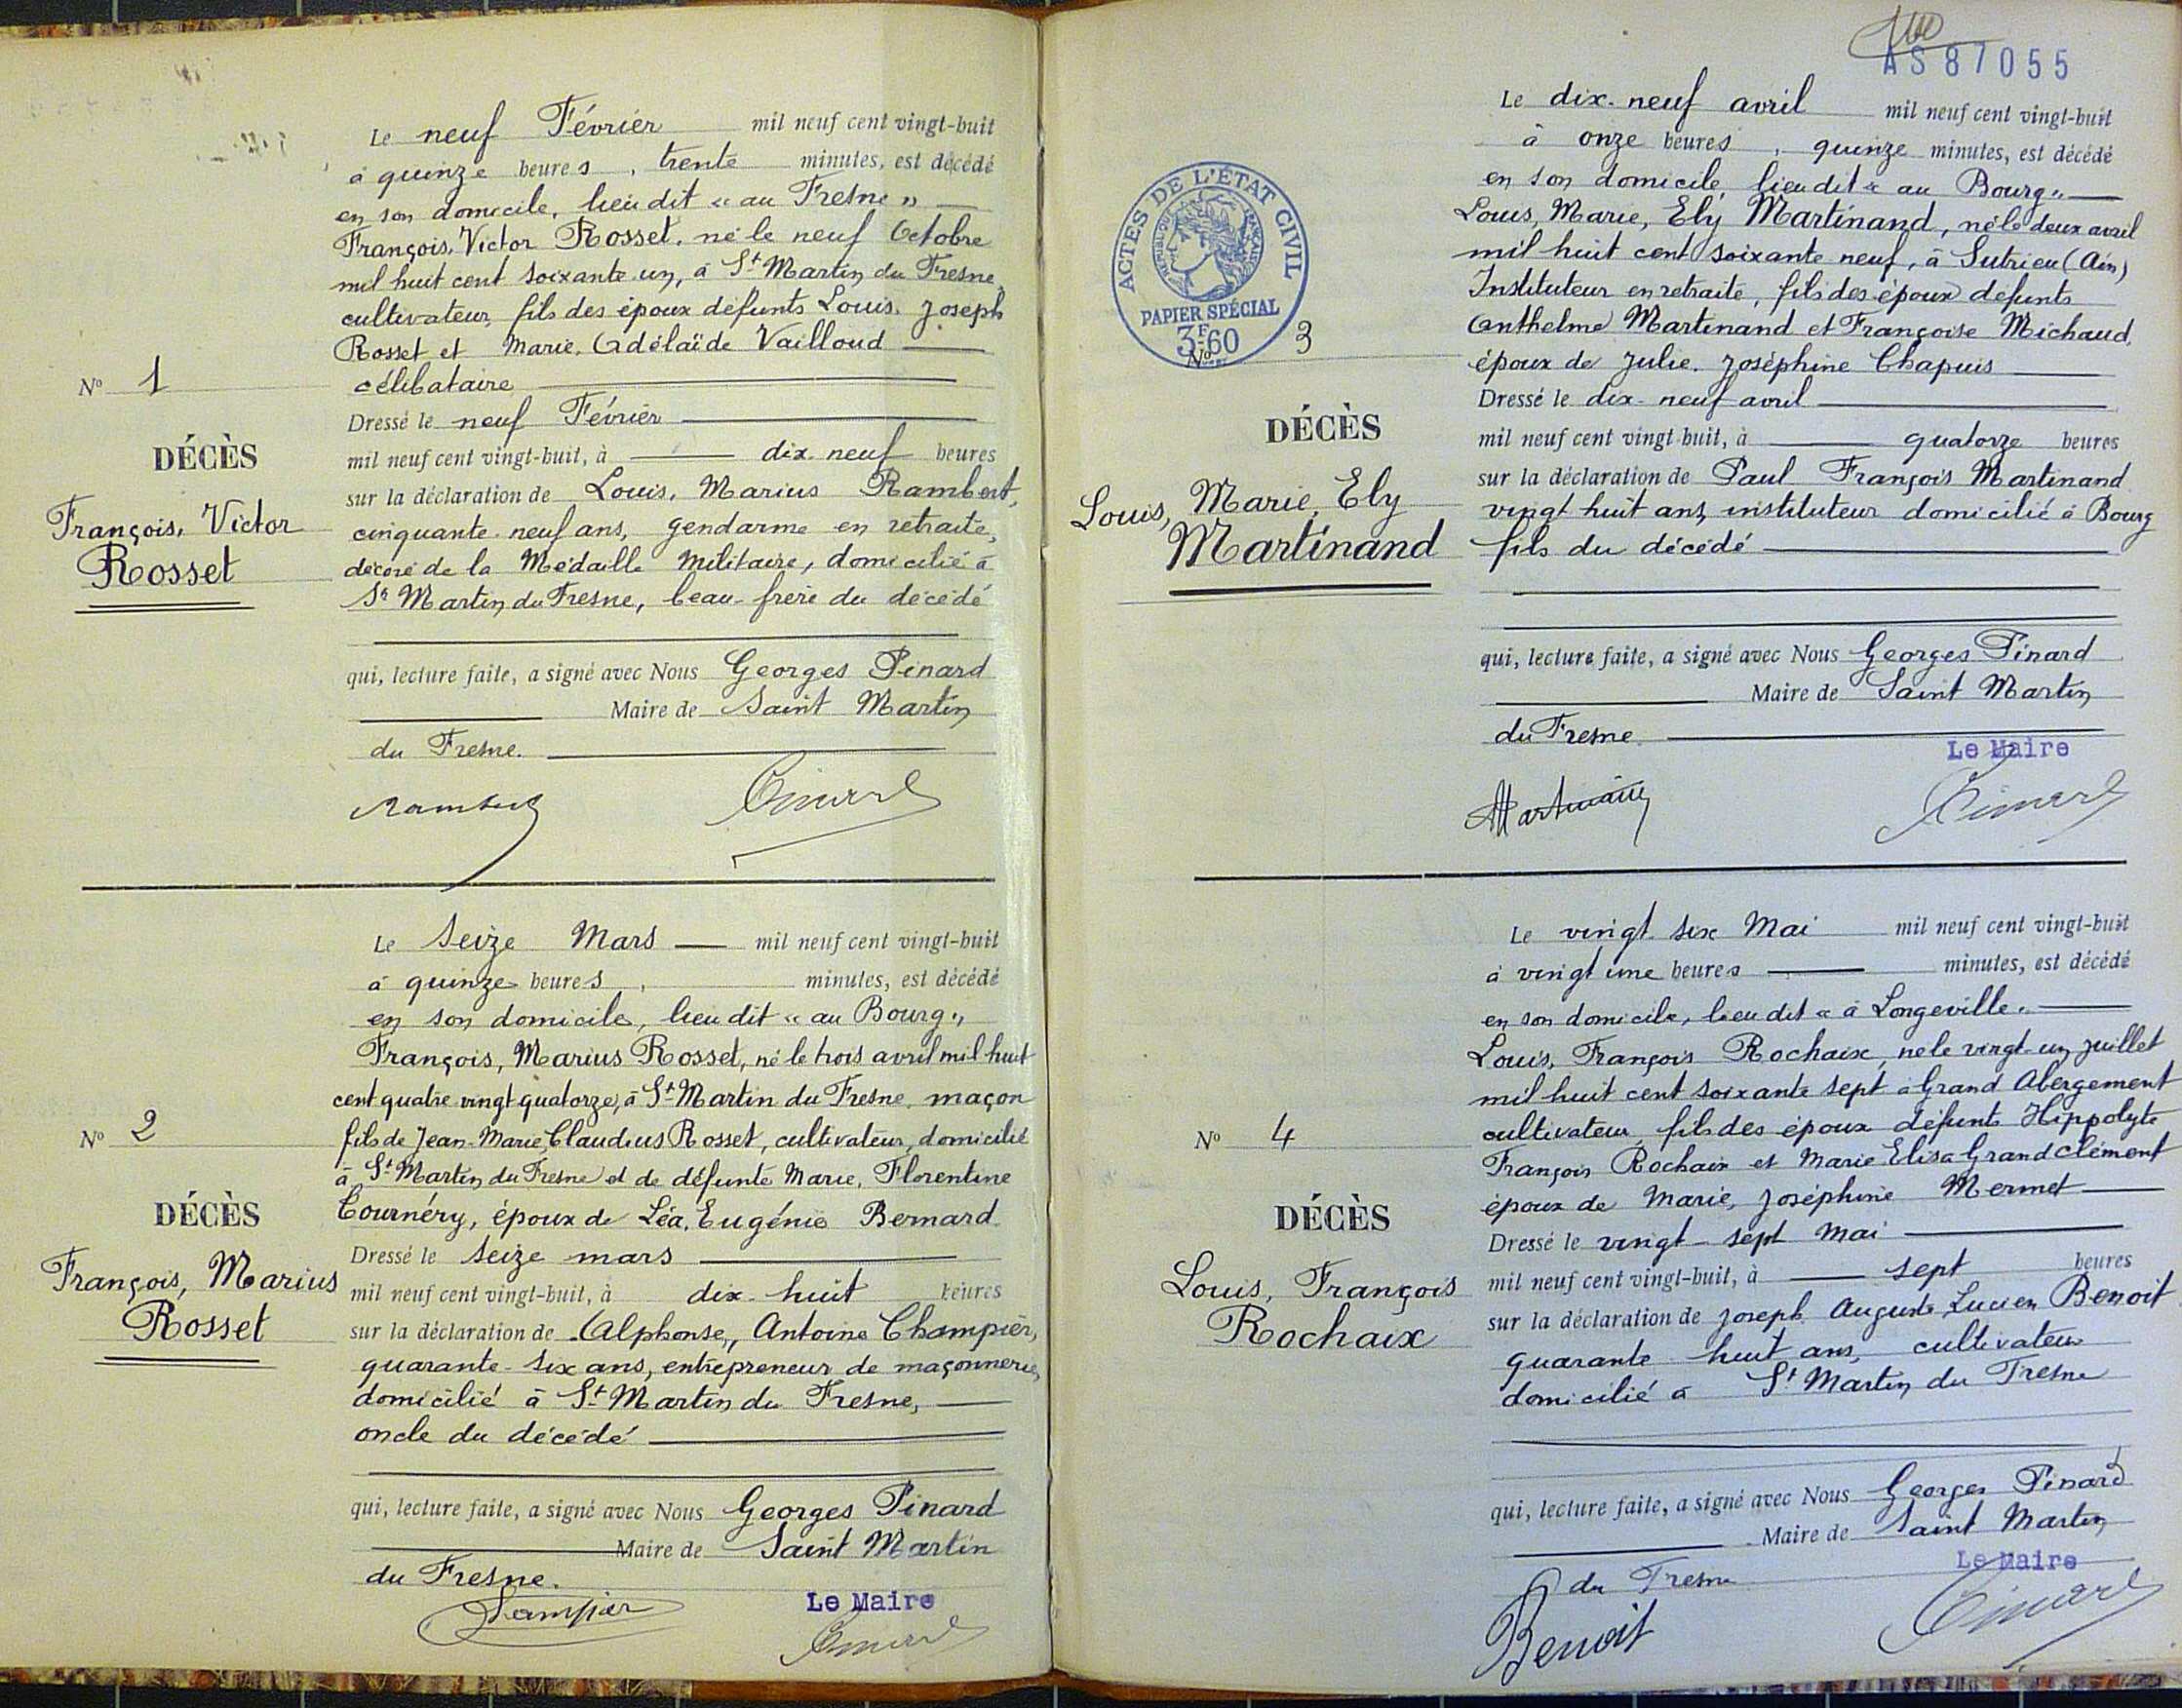 Le neuf Février mil neuf cent vingt-huit
à quinze heures, trente minutes, est décédé
en son domicile, lieu dit « au Fresne »
François, Victor Rosset, né le neuf Octobre
mil huit cent soixante un, à St Martin du Fresne,
cultivateur, fils des époux défunts Louis, Joseph
Rosset et Marie, Adélaïde Vailloud
célibataire
Dressé le neuf Février
mil neuf cent vingt-huit, à dix-neuf heures
sur la déclaration de Louis, Marius Rambert,
cinquante-neuf ans, gendarme en retraite,
décoré de la Médaille Militaire, domicilié à
St Martin du Fresne, beau-frère du décédé
qui, lecture faite, a signé avec Nous Georges Pinard
Maire de Saint Martin
du Fresne.
Rambert Pinard
No 1
DÉCÈS
François, Victor
Rosset
Le seize Mars mil neuf cent vingt-huit
à quinze heures, minutes, est décédé
en son domicile, lieu dit « au Bourg »,
François, Marius Rosset, né le trois avril mil huit
cent quatre vingt quatorze, à St Martin du Fresne, maçon
fils de Jean-Marie, Claudius Rosset, cultivateur, domicilié
à St Martin du Fresne et de défunte Marie, Florentine
Tournéry, époux de Léa, Eugénie Bernard
Dressé le seize mars
mil neuf cent vingt-huit, à dix-huit heures
sur la déclaration de Alphonse, Antoine Champier,
quarante-six ans, entrepreneur de maçonnerie,
domicilié à St Martin du Fresne,
oncle du décédé
qui, lecture faite, a signé avec Nous Georges Pinard
Maire de Saint Martin
du Fresne.
Le Maire
Champier Pinard
No 2
DÉCÈS
François, Marius
Rosset
AS 87055
ACTES DE L'ÉTAT CIVIL
RÉPUBLIQUE FRANÇAISE
PAPIER SPÉCIAL
3F60
Le dix-neuf avril mil neuf cent vingt-huit
à onze heures, quinze minutes, est décédé
en son domicile, lieu dit « au Bourg »
Louis, Marie, Ely Martinand, né le deux avril
mil huit cent soixante neuf, à Sutrieu (Ain)
Instituteur en retraite, fils des époux défunts
Anthelme Martinand et Françoise Michaud,
époux de Julie, Joséphine Chapuis
Dressé le dix-neuf avril
mil neuf cent vingt-huit, à quatorze heures
sur la déclaration de Paul François Martinand
vingt huit ans, instituteur domicilié à Bourg
fils du décédé
qui, lecture faite, a signé avec Nous Georges Pinard
Maire de Saint Martin
du Fresne
Le Maire
Martinand Pinard
No 3
DÉCÈS
Louis, Marie, Ely
Martinand
Le vingt six Mai mil neuf cent vingt-huit
à vingt une heures minutes, est décédé
en son domicile, lieu dit « à Longeville »
Louis, François Rochaix, né le vingt-un juillet
mil huit cent soixante sept à Grand Abergement
cultivateur, fils des époux défunts Hippolyte
François Rochaix et Marie Elisa Grandclément
époux de Marie, Joséphine Mermet
Dressé le vingt-sept mai
mil neuf cent vingt-huit, à sept heures
sur la déclaration de Joseph, Auguste, Lucien Benoit
quarante-huit ans, cultivateur
domicilié à St Martin du Fresne
qui, lecture faite, a signé avec Nous Georges Pinard
Maire de Saint Martin
du Fresne
Le Maire
Benoit Pinard
No 4
DÉCÈS
Louis, François
Rochaix